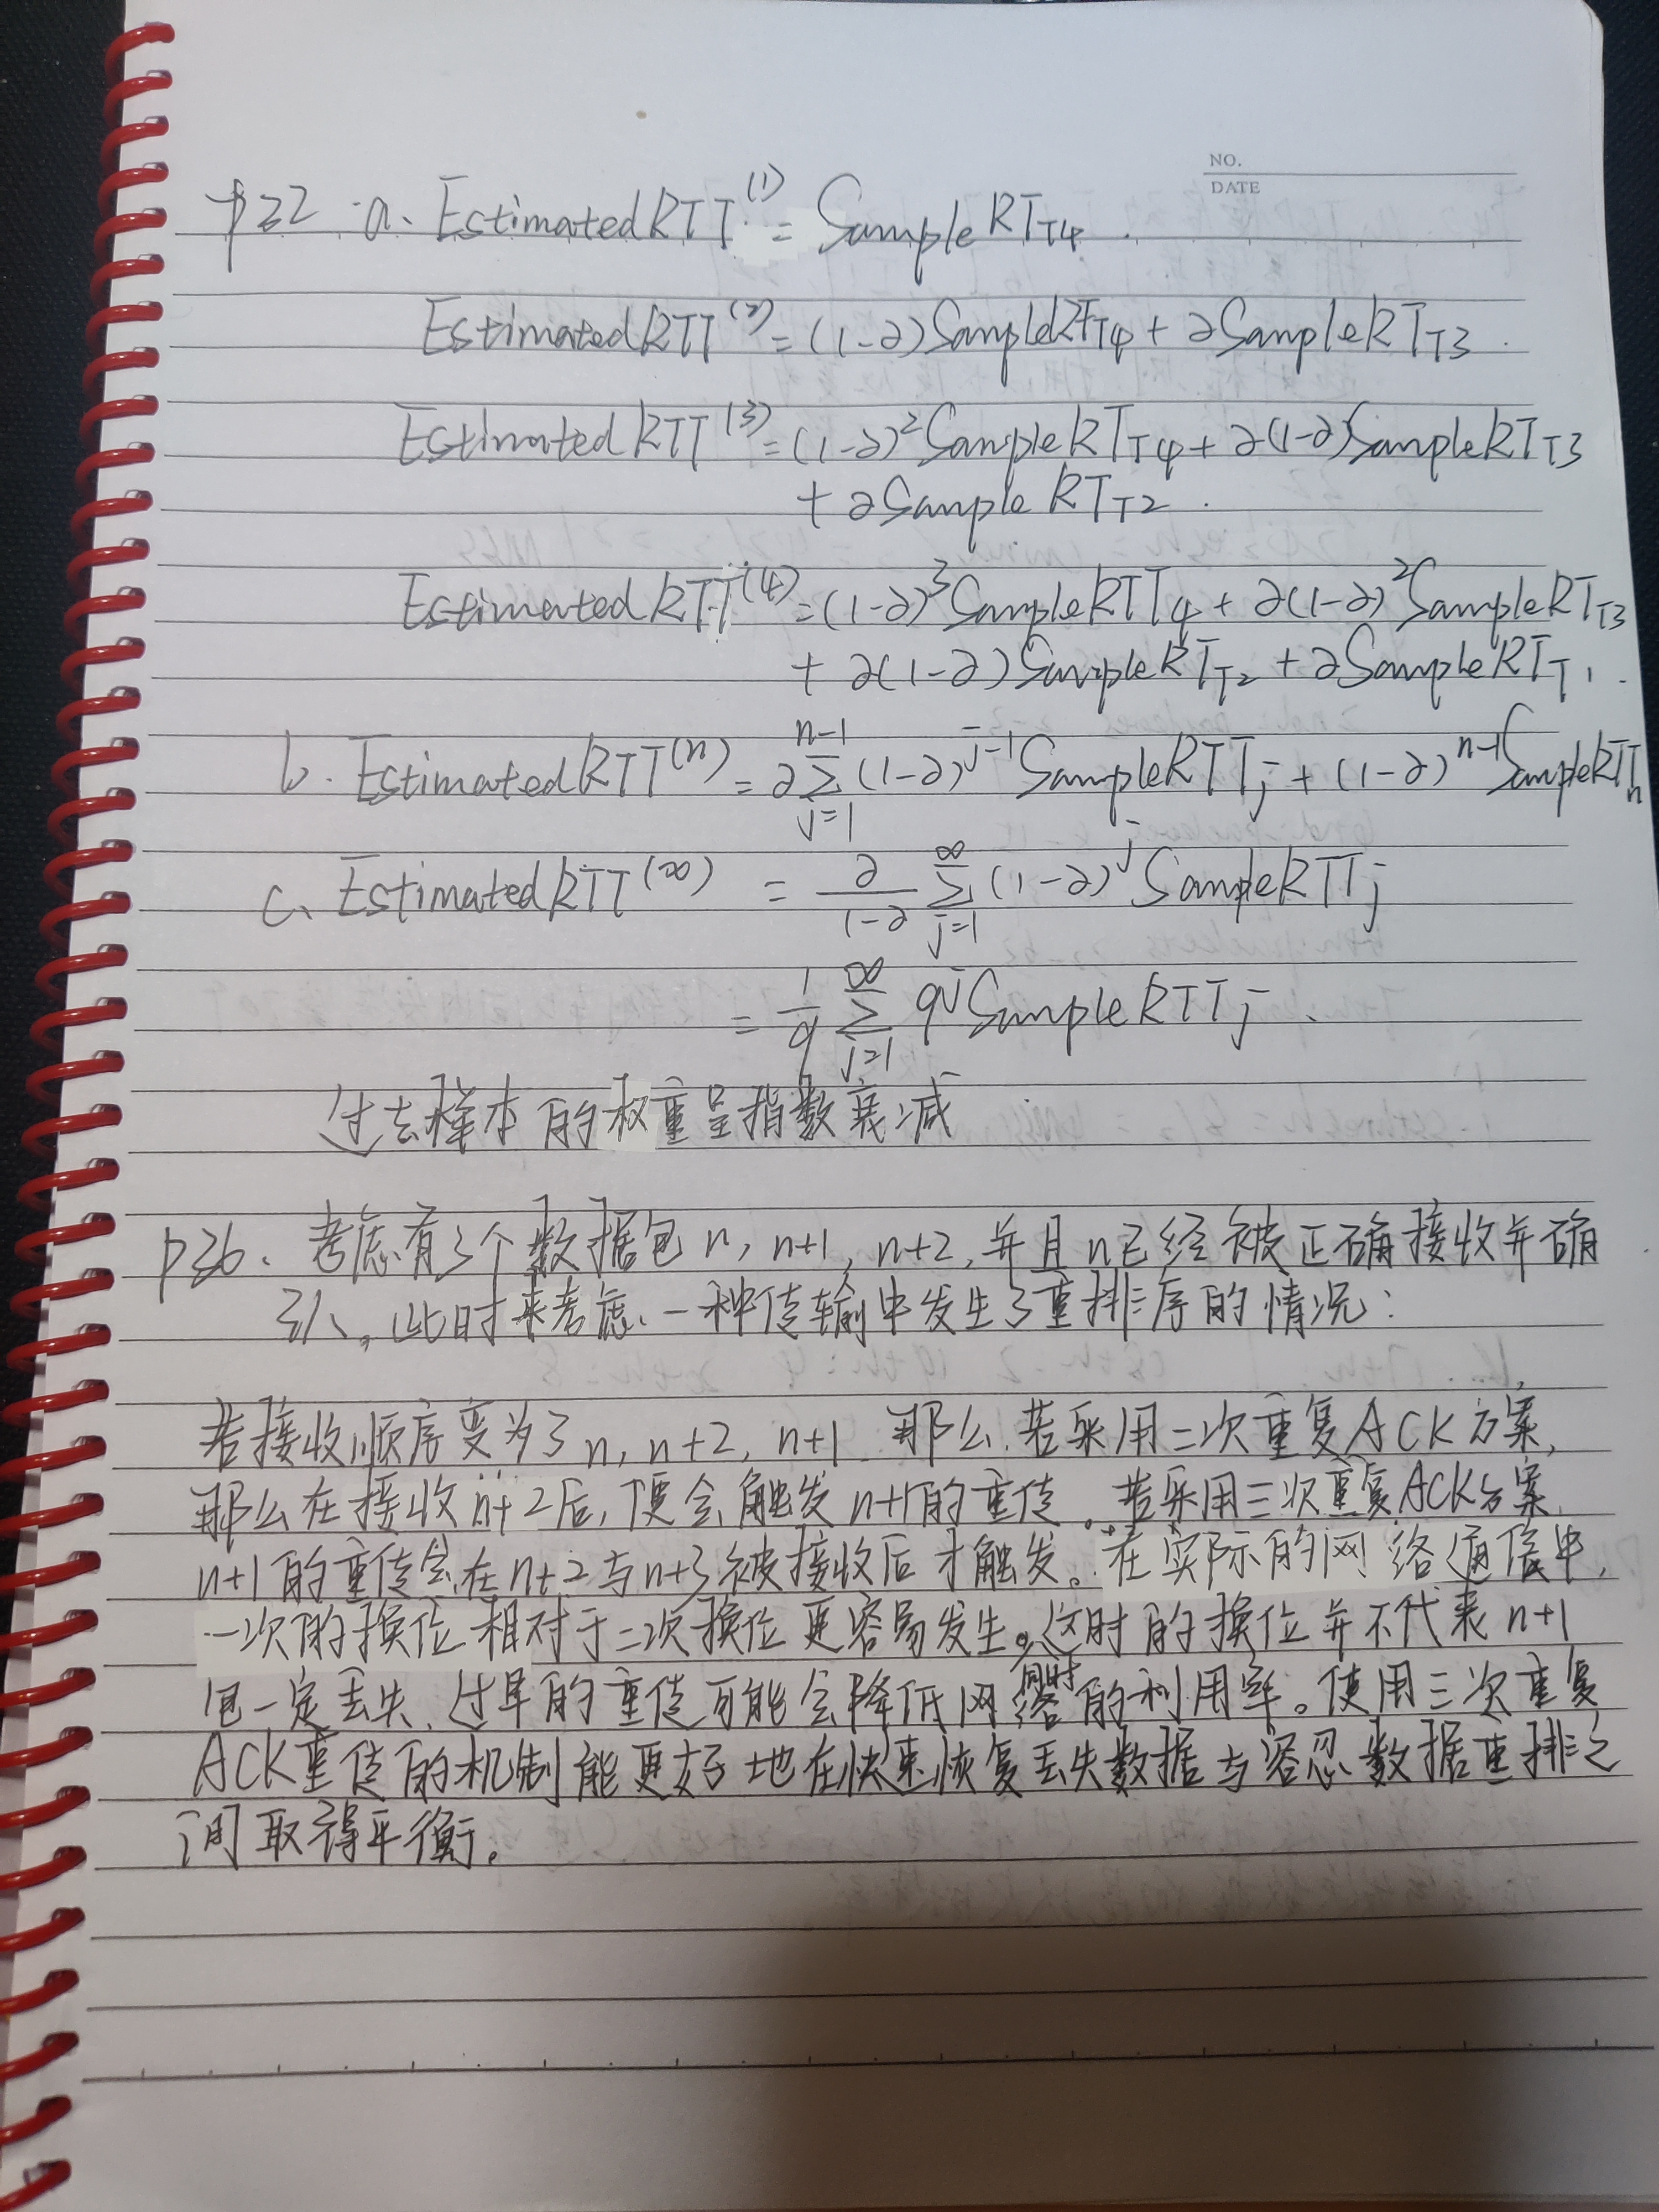 NO.
DATE
P22 a. EstimatedRTT⁽¹⁾ = SampleRTT4.
EstimatedRTT⁽²⁾ = (1-∂)SampleRTT4 + ∂SampleRTT3.
EstimatedRTT⁽³⁾ = (1-∂)²SampleRTT4 + ∂(1-∂)SampleRTT3
+ ∂SampleRTT2.
EstimatedRTT⁽⁴⁾ = (1-∂)³SampleRTT4 + ∂(1-∂)²SampleRTT3
+ ∂(1-∂)SampleRTT2 + ∂SampleRTT1.
b. EstimatedRTT⁽ⁿ⁾ = ∂ Σ_{j=1}^{n-1} (1-∂)^{j-1} SampleRTTj + (1-∂)^{n-1} SampleRTTn
c. EstimatedRTT^(∞) = ∂/(1-∂) Σ_{j=1}^{∞} (1-∂)^j SampleRTTj
= 1/9 Σ_{j=1}^{∞} 9^j SampleRTTj.
过去样本的权重呈指数衰减
P36. 考虑有3个数据包n, n+1, n+2, 并且n已经被正确接收并确
认。此时来考虑一种传输中发生了重排序的情况:
若接收顺序变为了n, n+2, n+1. 那么若采用二次重复ACK方案,
那么在接收n+2后, 便会触发n+1的重传。若采用三次重复ACK方案,
n+1的重传会在n+2与n+3被接收后才触发。在实际的网络通信中,
一次的换位相对于二次换位更容易发生。这时的换位并不代表n+1
包一定丢失, 过早的重传可能会降低网络的利用率。使用三次重复
同时
ACK重传的机制能更好地在快速恢复丢失数据与容忍数据重排之
间取得平衡。